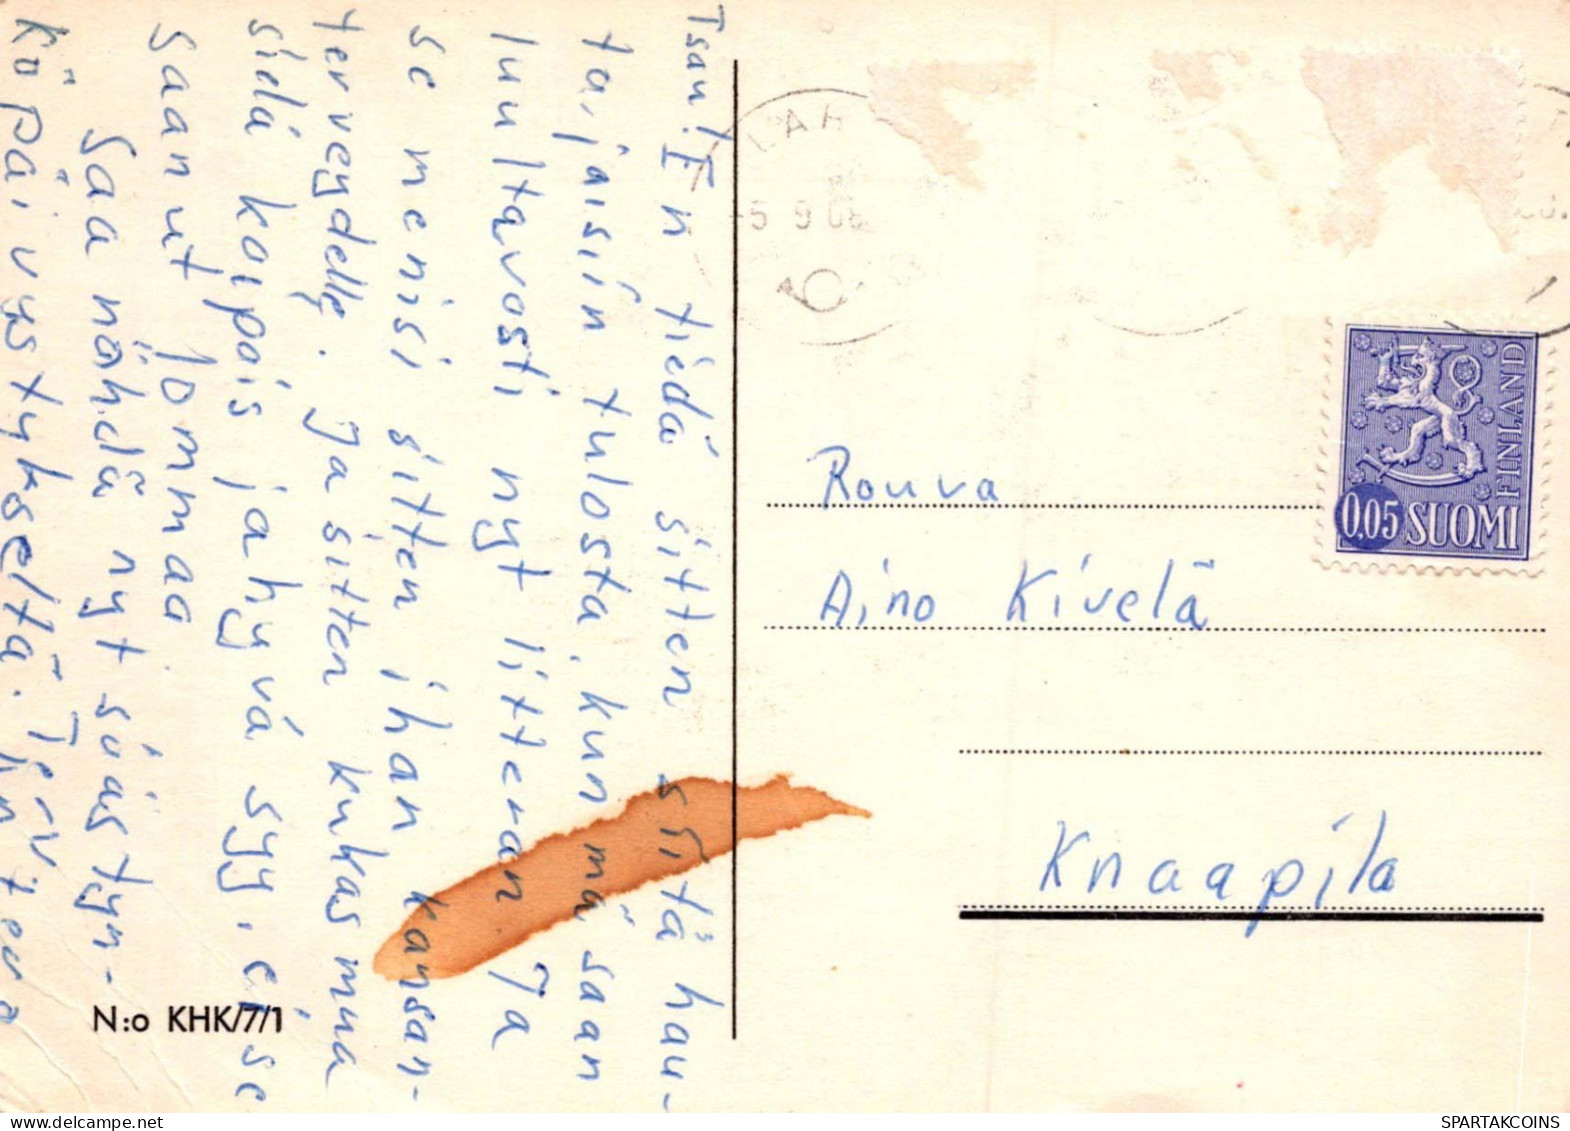 Tsau! En tiedä sitten siitä hau-
tajaisiin tulosta, kun mä saan
luultavosti nyt litteran Ja
se menisi sitten ihan kansan-
terveydelle. Ja sitten kukas mua
sielä kaipais ja hyvä syy, ei se
saanut Jommaa.
Saa nähdä nyt süas tyn-
köpäivystykseltä. Terv
LAH
-5 9 66
FINLAND
0,05 SUOMI
Rouva
Aino Kivelä
Knaapila
N:o KHK/7/1
SPARTAKCOINS